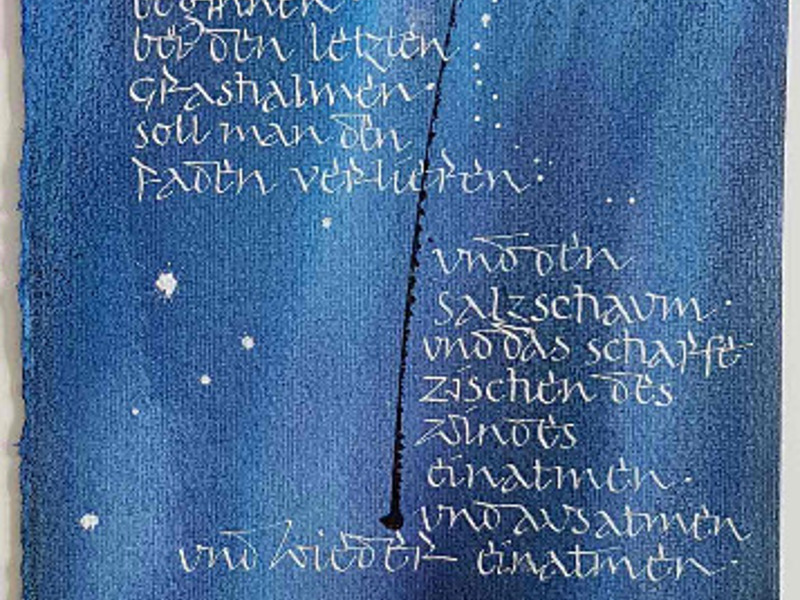 beginnen
bei den letzten
Grashalmen.
soll man den
Faden verlieren.
vnd den
salzschavm.
vnd das scharfe
zischen des
windes
einatmen.
vnd avsatmen
vnd wieder einatmen.